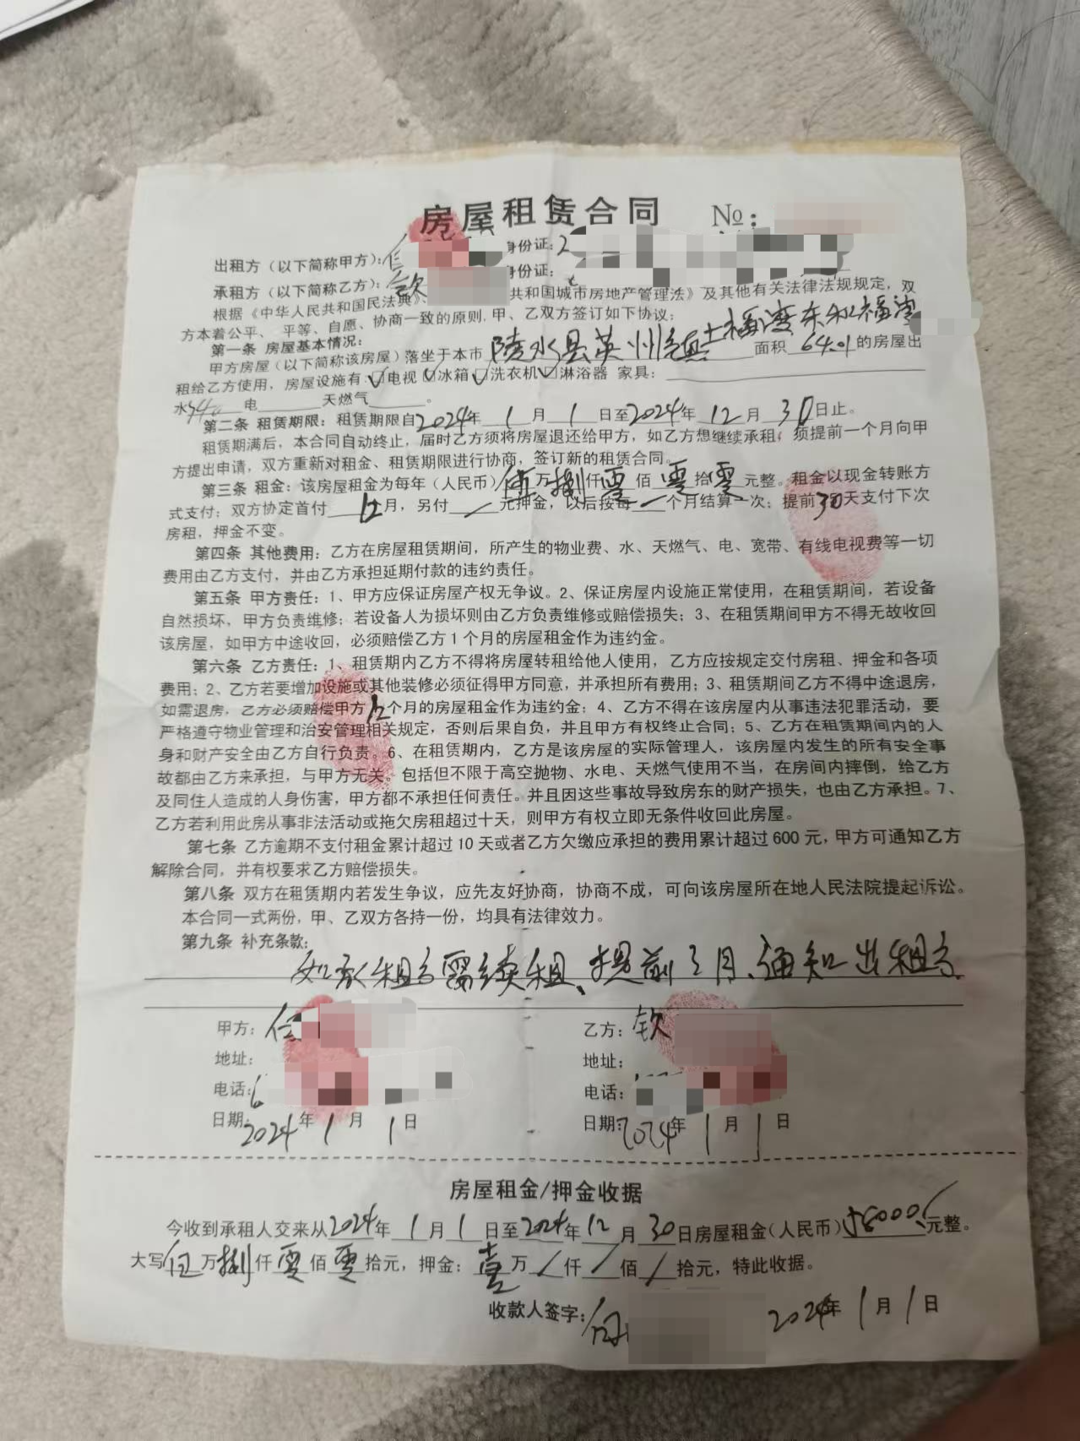 房屋租赁合同 №:
出租方（以下简称甲方）: 身份证:2
承租方（以下简称乙方）: 钦 身份证:
根据《中华人民共和国民法典》 共和国城市房地产管理法》及其他有关法律法规规定，双
方本着公平、平等、自愿、协商一致的原则.甲、乙双方签订如下协议：
第一条 房屋基本情况:
甲方房屋（以下简称该房屋）落坐于本市 陵水县英州镇土福湾 面积 64.01 的房屋出
租给乙方使用，房屋设施有: ☑电视 ☑冰箱 ☑洗衣机 ☑淋浴器 家具:
水 电 天燃气 。
第二条 租赁期限: 租赁期限自2024年1月1日至2024年12月30日止。
租赁期满后，本合同自动终止，届时乙方须将房屋退还给甲方，如乙方想继续承租，须提前一个月向甲
方提出申请，双方重新对租金、租赁期限进行协商，签订新的租赁合同。
第三条 租金: 该房屋租金为每年（人民币）伍万捌仟零佰零拾零元整。租金以现金转账方
式支付；双方协定首付 月，另付 元押金，以后按每 个月结算一次；提前30天支付下次
房租，押金不变。
第四条 其他费用: 乙方在房屋租赁期间，所产生的物业费、水、天燃气、电、宽带、有线电视费等一切
费用由乙方支付，并由乙方承担延期付款的违约责任。
第五条 甲方责任: 1、甲方应保证房屋产权无争议。2、保证房屋内设施正常使用，在租赁期间，若设备
自然损坏，甲方负责维修；若设备人为损坏则由乙方负责维修或赔偿损失；3、在租赁期间甲方不得无故收回
该房屋，如甲方中途收回，必须赔偿乙方1个月的房屋租金作为违约金。
第六条 乙方责任: 1、租赁期内乙方不得将房屋转租给他人使用，乙方应按规定交付房租、押金和各项
费用；2、乙方若要增加设施或其他装修必须征得甲方同意，并承担所有费用；3、租赁期间乙方不得中途退房，
如需退房，乙方必须赔偿甲方 个月的房屋租金作为违约金；4、乙方不得在该房屋内从事违法犯罪活动，要
严格遵守物业管理和治安管理相关规定，否则后果自负，并且甲方有权终止合同；5、乙方在租赁期间内的人
身和财产安全由乙方自行负责。6、在租赁期内，乙方是该房屋的实际管理人，该房屋内发生的所有安全事
故都由乙方来承担，与甲方无关。包括但不限于高空抛物、水电、天燃气使用不当，在房间内摔倒，给乙方
及同住人造成的人身伤害，甲方都不承担任何责任。并且因这些事故导致房东的财产损失，也由乙方承担。7、
乙方若利用此房从事非法活动或拖欠房租超过十天，则甲方有权立即无条件收回此房屋。
第七条 乙方逾期不支付租金累计超过10天或者乙方欠缴应承担的费用累计超过600元，甲方可通知乙方
解除合同，并有权要求乙方赔偿损失。
第八条 双方在租赁期内若发生争议，应先友好协商，协商不成，可向该房屋所在地人民法院提起诉讼。
本合同一式两份，甲、乙双方各持一份，均具有法律效力。
第九条 补充条款:
如承租方需续租、提前 月、通知出租方
甲方: 乙方: 钦
地址: 地址:
电话: 电话:
日期: 2024年1月1日 日期: 2024年1月1日
房屋租金/押金收据
今收到承租人交来从2024年1月1日至2024年12月30日房屋租金（人民币）58000元整。
大写 伍万捌仟零佰零拾元，押金：壹万/仟/佰/拾元，特此收据。
收款人签字: 2024年1月1日